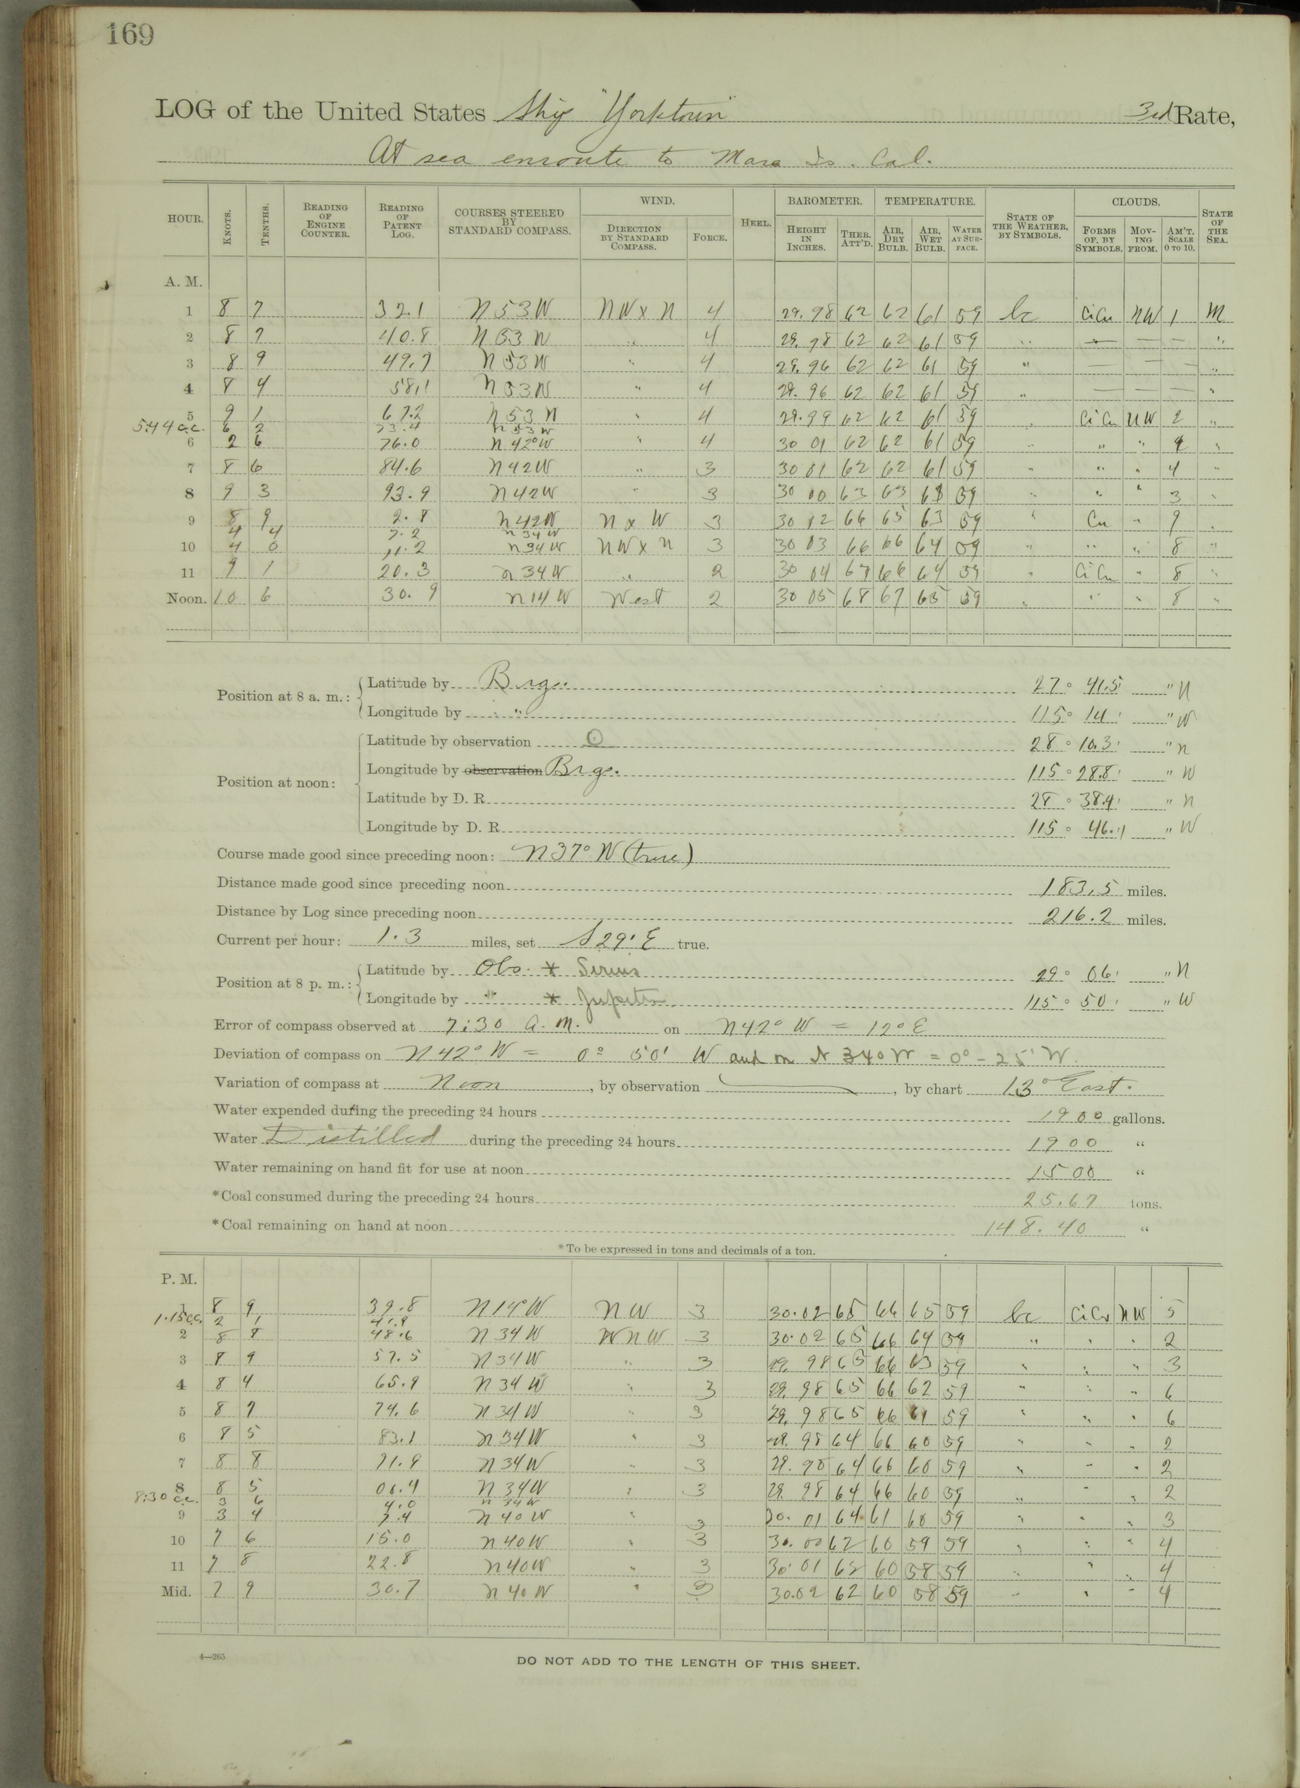 169
LOG of the United States Ship "Yorktown" 3rd Rate,
At sea enroute to Mare Is. Cal.
HOUR. KNOTS. TENTHS. READING OF ENGINE COUNTER. READING OF PATENT LOG. COURSES STEERED BY STANDARD COMPASS. WIND. DIRECTION BY STANDARD COMPASS. FORCE. HEEL. BAROMETER. HEIGHT IN INCHES. THER. ATT'D. TEMPERATURE. AIR, DRY BULB. AIR, WET BULB. WATER AT SURFACE. STATE OF THE WEATHER, BY SYMBOLS. CLOUDS. FORMS OF, BY SYMBOLS. MOVING FROM. AM'T. SCALE 0 TO 10. STATE OF THE SEA.
A. M.
1 8 7 32.1 N 53 W NW x N 4 29.98 62 62 61 59 bc CiCu NW 1 M
2 8 7 40.8 N 53 W " 4 29.98 62 62 61 59 " — — — "
3 8 9 49.7 N 53 W " 4 29.96 62 62 61 59 " — — "
4 8 4 58.1 N 53 W " 4 29.96 62 62 61 59 " — — — "
5 9 1 67.2 N 53 W " 4 29.99 62 62 61 59 " CiCu NW 2 "
5:44 c.c. 6 2 73.4 N 53 W
6 2 6 76.0 N 42° W " 4 30 01 62 62 61 59 " " " 4 "
7 8 6 84.6 N 42 W " 3 30 01 62 62 61 59 " " " 4 "
8 9 3 93.9 N 42 W " 3 30 00 63 63 61 59 " " " 3 "
9 8 9 2.8 N 42 W N x W 3 30 02 66 65 63 59 " Cu " 9 "
4 4 7.2 N 34 W
10 4 0 11.2 N 34 W NW x N 3 30 03 66 66 64 59 " " " 8 "
11 9 1 20.3 N 34 W " 2 30 04 67 66 64 59 " CiCu " 8 "
Noon. 10 6 30.9 N 14 W West 2 30 05 68 67 65 59 " " " 8 "
Position at 8 a. m.: Latitude by Brgs. 27° 41.5' " N
Longitude by " 115° 14' " W
Position at noon: Latitude by observation ☉ 28° 10.3' " N
Longitude by observation Brgs. 115° 28.8' " W
Latitude by D. R. 28° 38.4' " N
Longitude by D. R. 115° 46.4' " W
Course made good since preceding noon: N 37° W (true)
Distance made good since preceding noon 183.5 miles.
Distance by Log since preceding noon 216.2 miles.
Current per hour: 1.3 miles, set S 29° E true.
Position at 8 p. m.: Latitude by Obs. * Sirius 29° 06' " N
Longitude by " * Jupiter 115° 50' " W
Error of compass observed at 7:30 a. m. on N 42° W = 12° E
Deviation of compass on N 42° W = 0° 50' W and on N 34° W = 0° - 25' W.
Variation of compass at Noon, by observation, by chart 13° East.
Water expended during the preceding 24 hours 1900 gallons.
Water Distilled during the preceding 24 hours 1900 "
Water remaining on hand fit for use at noon 1500 "
*Coal consumed during the preceding 24 hours 25.67 tons.
*Coal remaining on hand at noon 148.40 "
*To be expressed in tons and decimals of a ton.
P. M.
1 8 9 39.8 N 14° W NW 3 30.02 65 66 65 59 bc CiCu NW 5
1.15 c.c. 2 1 41.9
2 8 8 48.6 N 34 W WNW 3 30.02 65 66 64 59 " " " 2
3 8 9 57.5 N 34 W " 3 29. 98 65 66 63 59 " " " 3
4 8 4 65.9 N 34 W " 3 29. 98 65 66 62 59 " " " 6
5 8 7 74.6 N 34 W " 3 29. 98 65 66 61 59 " " " 6
6 8 5 83.1 N 34 W " 3 29. 98 64 66 60 59 " " " 2
7 8 8 91.9 N 34 W " 3 29. 98 64 66 60 59 " " " 2
8 8 5 00.4 N 34 W " 3 29. 98 64 66 60 59 " " " 2
8:30 c.c. 3 6 4.0 N 34 W
9 3 4 7.4 N 40 W " 3 30. 01 64 61 60 59 " " " 3
10 7 6 15.0 N 40 W " 3 30. 00 62 60 59 59 " " " 4
11 7 8 22.8 N 40 W " 3 30 01 62 60 58 59 " " " 4
Mid. 7 9 30.7 N 40 W " 3 30.02 62 60 58 59 " " " 4
4—265
DO NOT ADD TO THE LENGTH OF THIS SHEET.